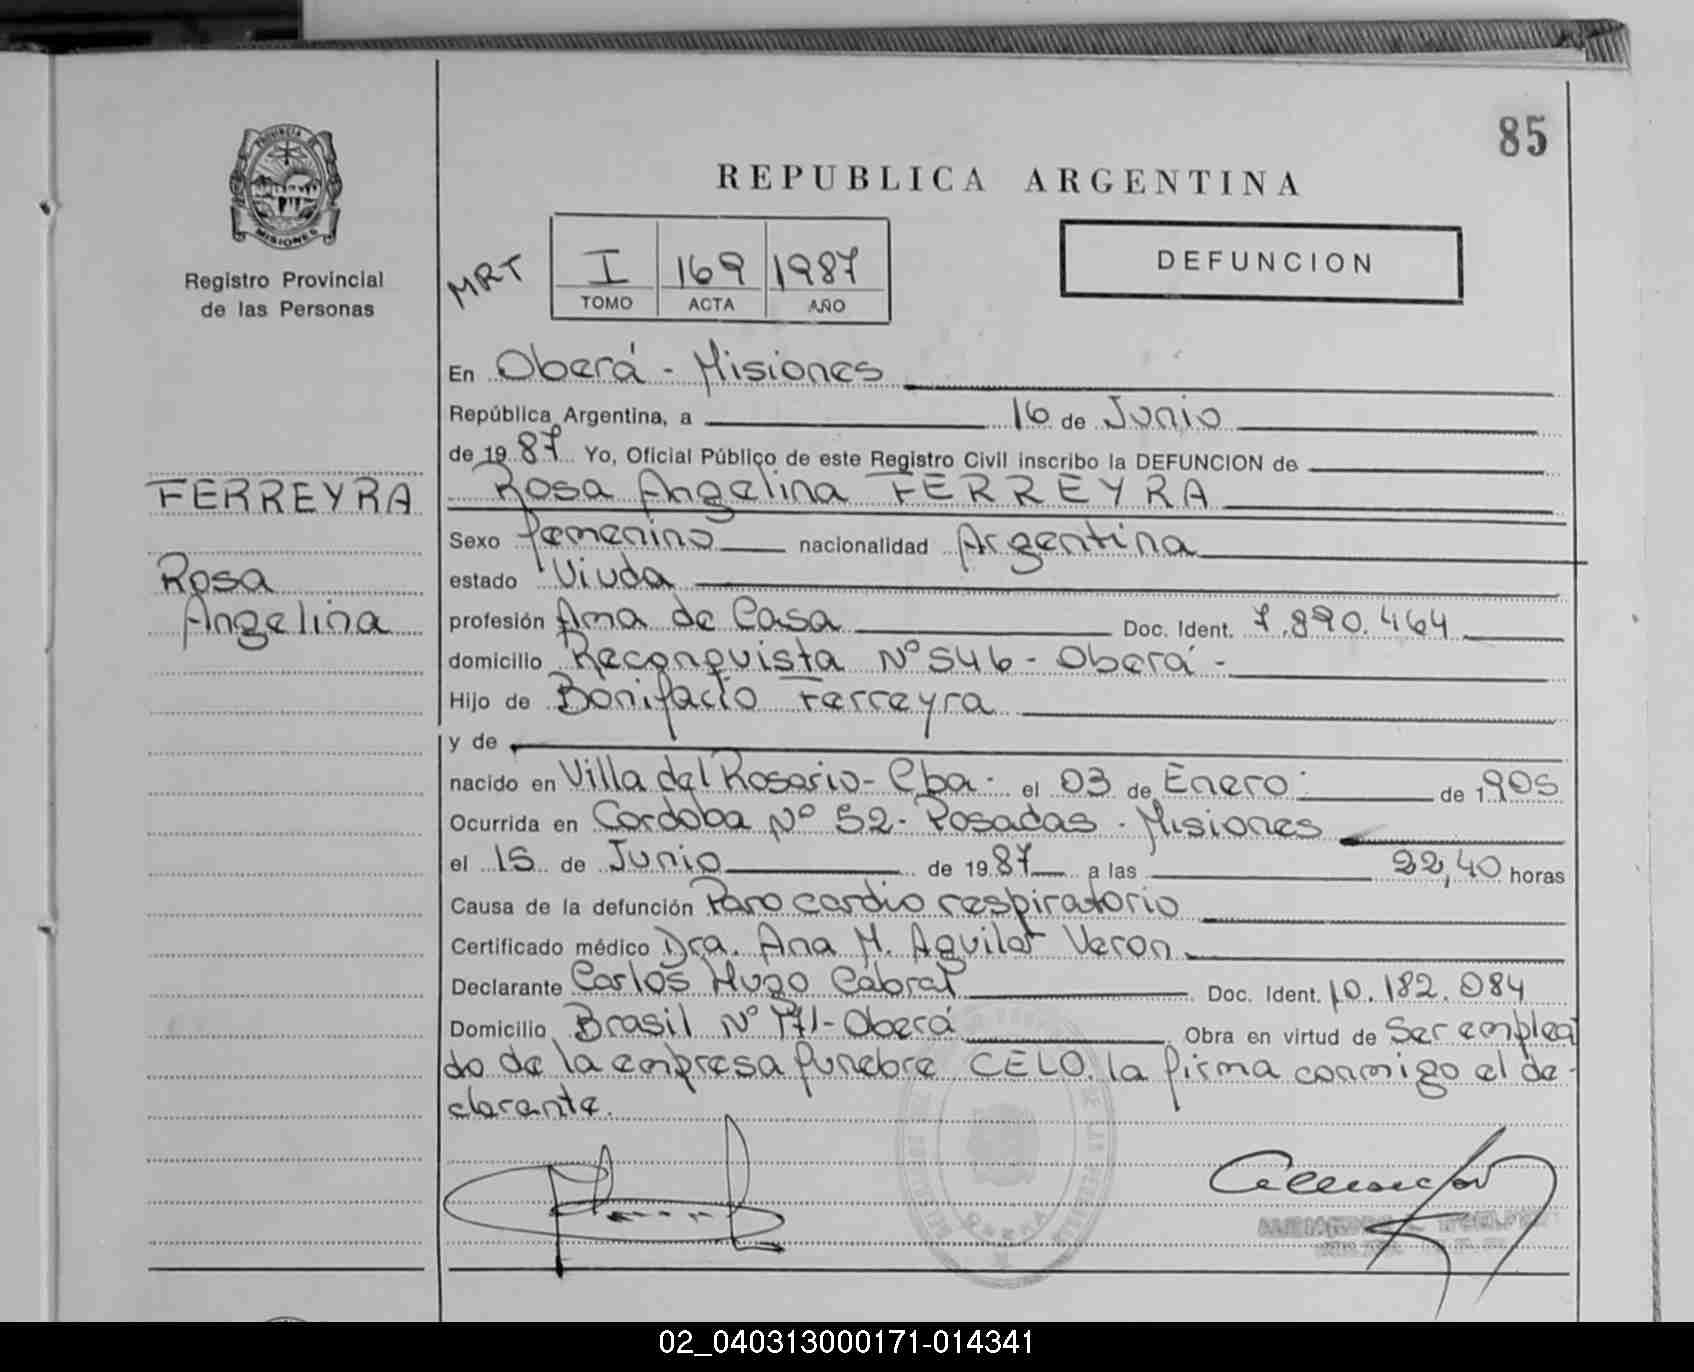 85
REPUBLICA ARGENTINA
PROVINCIA DE
MISIONES
Registro Provincial
de las Personas
MRT
I 169 1987
TOMO ACTA AÑO
DEFUNCION
En Oberá - Misiones
República Argentina, a 16 de Junio
de 1987 Yo, Oficial Público de este Registro Civil inscribo la DEFUNCION de
FERREYRA
Rosa Angelina FERREYRA
Sexo femenino nacionalidad Argentina
Rosa
estado Viuda
Angelina
profesión Ama de Casa Doc. Ident. 7.890.464
domicilio Reconquista Nº 546 - Oberá -
Hijo de Bonifacio Ferreyra
y de
nacido en Villa del Rosario - Cba - el 03 de Enero de 1905
Ocurrida en Cordoba Nº 52 - Posadas - Misiones
el 15 de Junio de 1987 a las 22,40 horas
Causa de la defunción Paro cardio respiratorio
Certificado médico Dra. Ana M. Aguilar Veron
Declarante Carlos Hugo Cabral Doc. Ident. 10.182.084
Domicilio Brasil Nº 171 - Oberá Obra en virtud de Ser emplea
do de la empresa funebre CELO. la firma conmigo el de-
clarante.
02_040313000171-014341